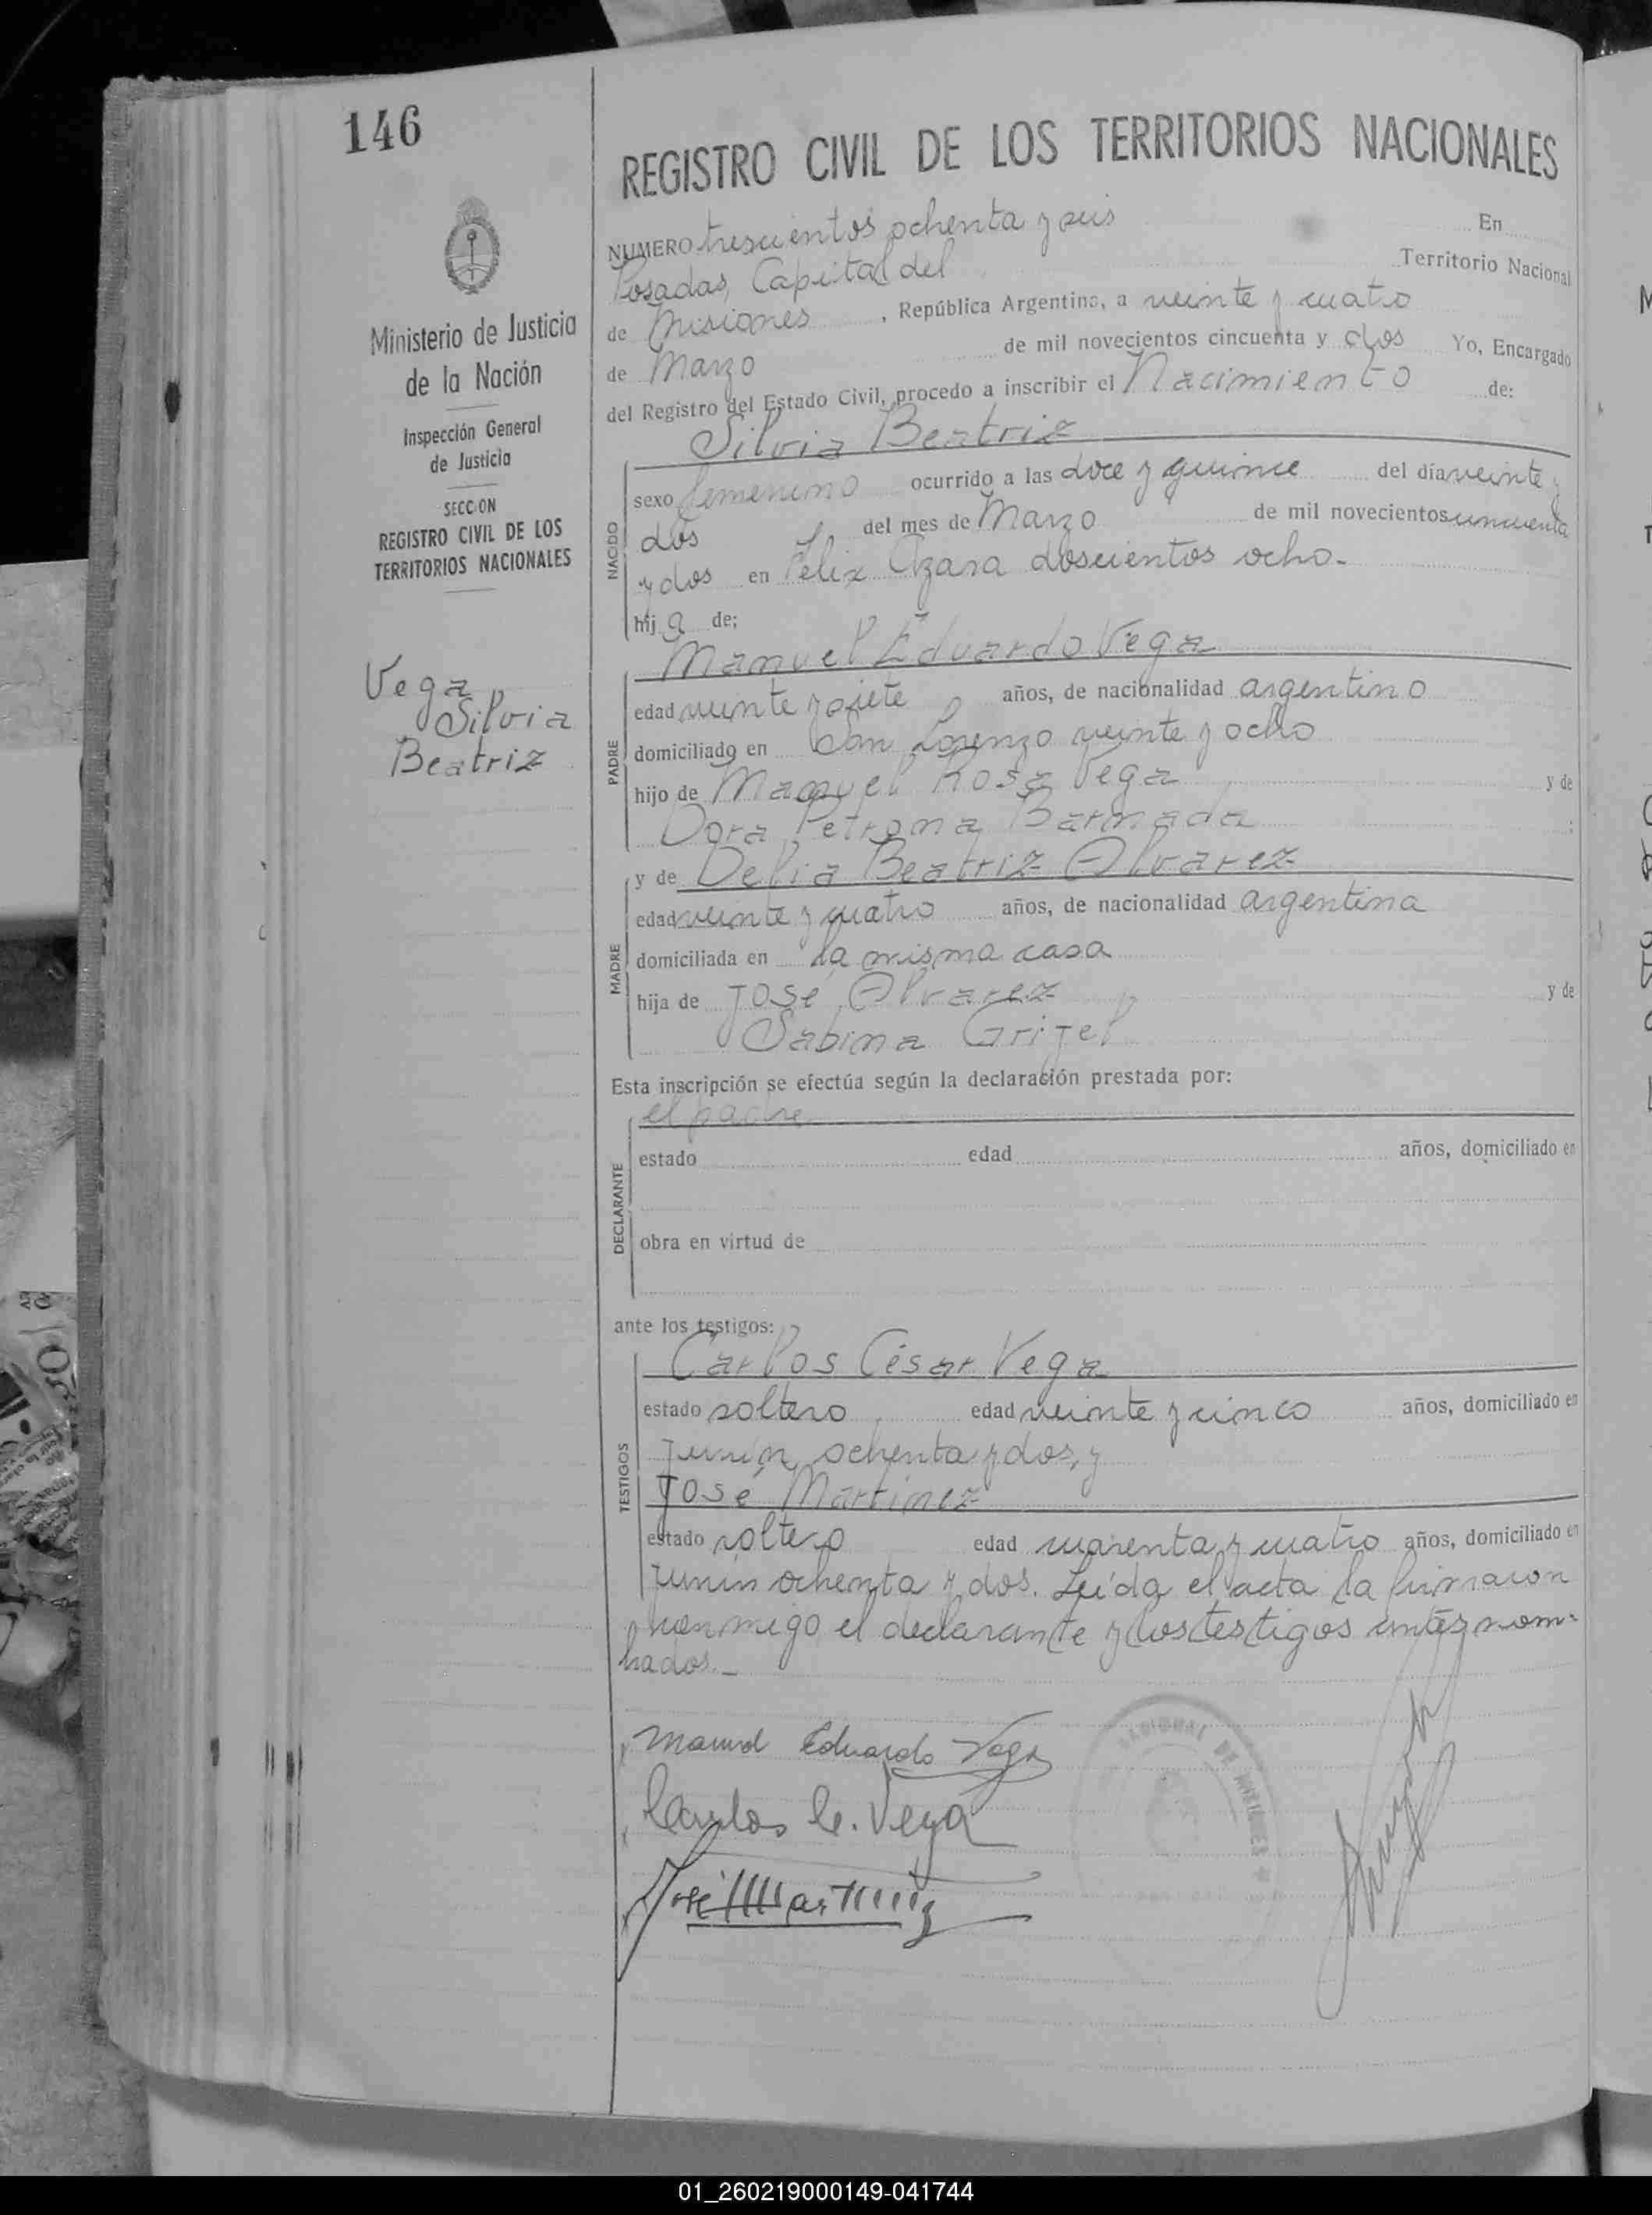 146
REGISTRO CIVIL DE LOS TERRITORIOS NACIONALES
Ministerio de Justicia
de la Nación
Inspección General
de Justicia
SECCION
REGISTRO CIVIL DE LOS
TERRITORIOS NACIONALES
Vega
Silvia
Beatriz
NUMERO trescientos ochenta y seis En
Posadas, Capital del Territorio Nacional
de Misiones, República Argentina, a veinte y cuatro
de Marzo de mil novecientos cincuenta y dos Yo, Encargado
del Registro del Estado Civil, procedo a inscribir el Nacimiento de:
Silvia Beatriz
NACIDO
sexo femenino ocurrido a las doce y quince del día veinte y
dos del mes de Marzo de mil novecientos cincuenta
y dos en Félix Azara doscientos ocho.
hij a de;
Manuel Eduardo Vega
PADRE
edad veinte y siete años, de nacionalidad argentino
domiciliado en San Lorenzo veinte y ocho
hijo de Manuel Rosa Vega y de
Dora Petrona Barnada
y de Delia Beatriz Alvarez
MADRE
edad veinte y cuatro años, de nacionalidad argentina
domiciliada en la misma casa
hija de José Alvarez y de
Sabina Grijel
Esta inscripción se efectúa según la declaración prestada por:
el padre
DECLARANTE
estado edad años, domiciliado en
obra en virtud de
ante los testigos:
Carlos César Vega
TESTIGOS
estado soltero edad veinte y cinco años, domiciliado en
Junín ochenta y dos, y
José Martinez
estado soltero edad cuarenta y cuatro años, domiciliado en
Junín ochenta y dos. Leída el acta la firmaron
conmigo el declarante y los testigos antes nom=
brados._
Manuel Eduardo Vega
Carlos C. Vega
José Martinez
DE MISIONES
01_260219000149-041744